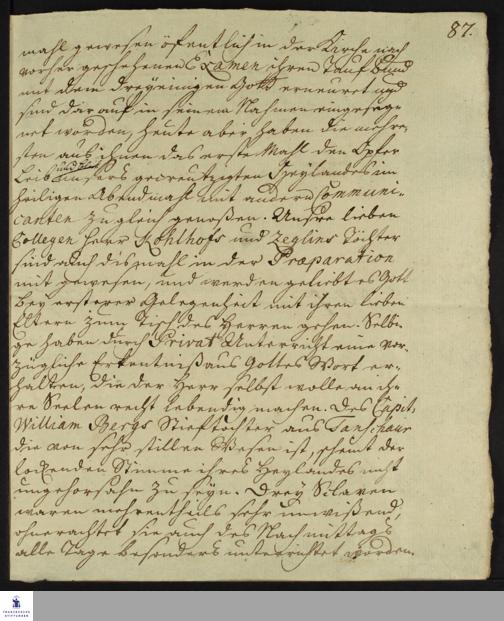 87.
mahl gewesen öfentlich in der Kirche nach
vorher geschehenen Examen ihren Taufbund
mit dem dreyeinigen Gott erneuret und
sind darauf in seinem Nahmen eingeseg-
net worden, heute aber haben die mehre-
sten aus ihnen das erste Mahl den Opfer
Leib und Blut unsers gecreutzigten Heylandes im
heiligen Abendmahl mit andern Communi-
canten zugleich genoßen. Unsre lieben
Collegen Herr Kohlhofs und Zeglins Töchter
sind auch dismahl in der Præparation
mit gewesen, und werden geliebt es Gott
bey ersterer Gelegenheit mit ihren lieben
Eltern zum Tisch des Herren gehen. Selbi-
ge haben durch Privat Unterricht eine vor-
zügliche Erkentniß aus Gottes Wort er-
halten, die der Herr selbst wolle an ih-
re Seelen recht lebendig machen. Des Capit.
William Bergs Stieftochter aus Tanschaur
die von sehr stillen Wesen ist, scheint der
lockenden Stimme ihres Heylandes nicht
ungehorsahm zu seyn. Drey Sclaven
waren mehrentheils sehr unwißend,
ohnerachtet sie auch des Nachmittags
alle Tage besonders unterrichtet worden.
FRANCKESCHE
STIFTUNGEN